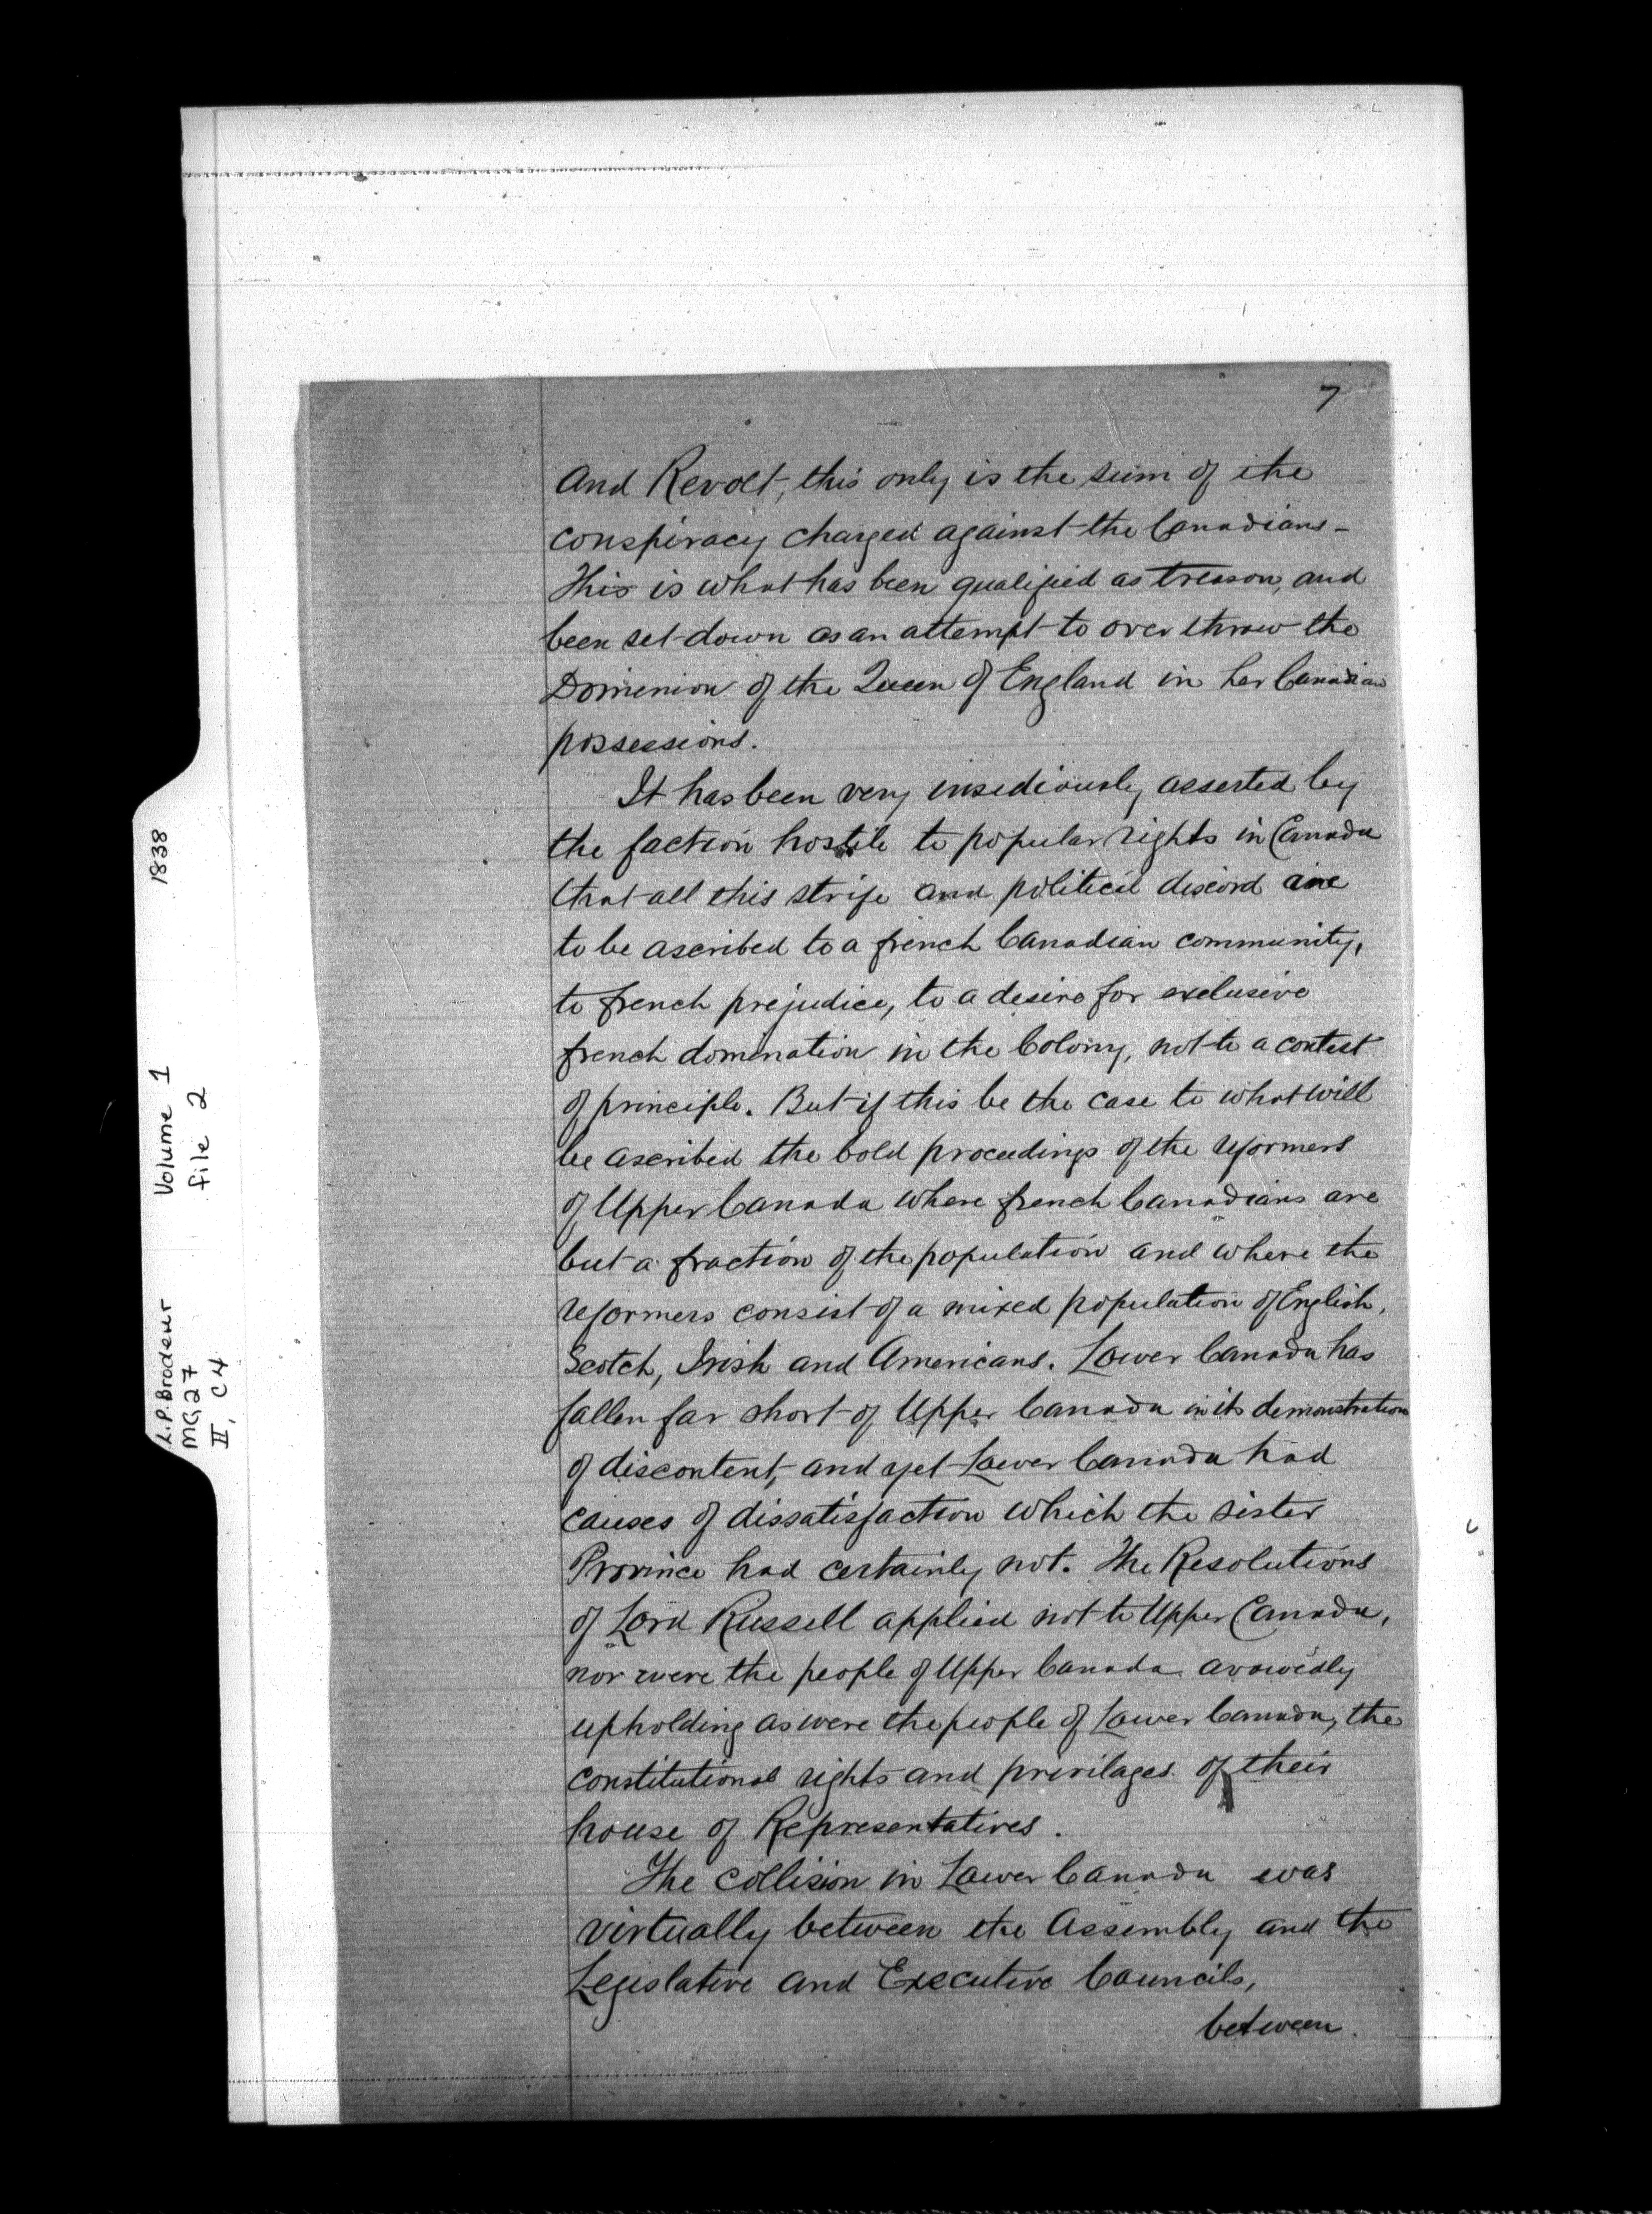 7
and Revolt, this only is the sum of the
conspiracy charged against the Canadians -
This is what has been qualified as treason, and
been set down as an attempt to over throw the
Dominion of the Queen of England in her Canadian
possessions.
It has been very insediously asserted by
the faction hostile to popular rights in Canada
that all this strife and political discord are
to be ascribed to a french Canadian community,
to french prejudice, to a desire for exclusive
french domination in the Colony, not to a contest
of principle. But if this be the case to what will
be ascribed the bold proceedings of the reformers
of Upper Canada where french Canadians are
but a fraction of the population and where the
reformers consist of a mixed population of English,
Scotch, Irish and Americans. Lower Canada has
fallen far short of Upper Canada in its demonstration
of discontent, and yet Lower Canada had
causes of dissatisfaction which the sister
Province had certainly not. The Resolutions
of Lord Russell applied not to Upper Canada,
nor were the people of Upper Canada avowedly
upholding as were the people of Lower Canada, the
constitutional rights and privilages of their
house of Representatives.
The collision in Lower Canada was
virtually between the Assembly and the
Legislative and Executive Councils,
between.
L.P. Brodeur Volume 1 1838
MG27 file 2
II, C4